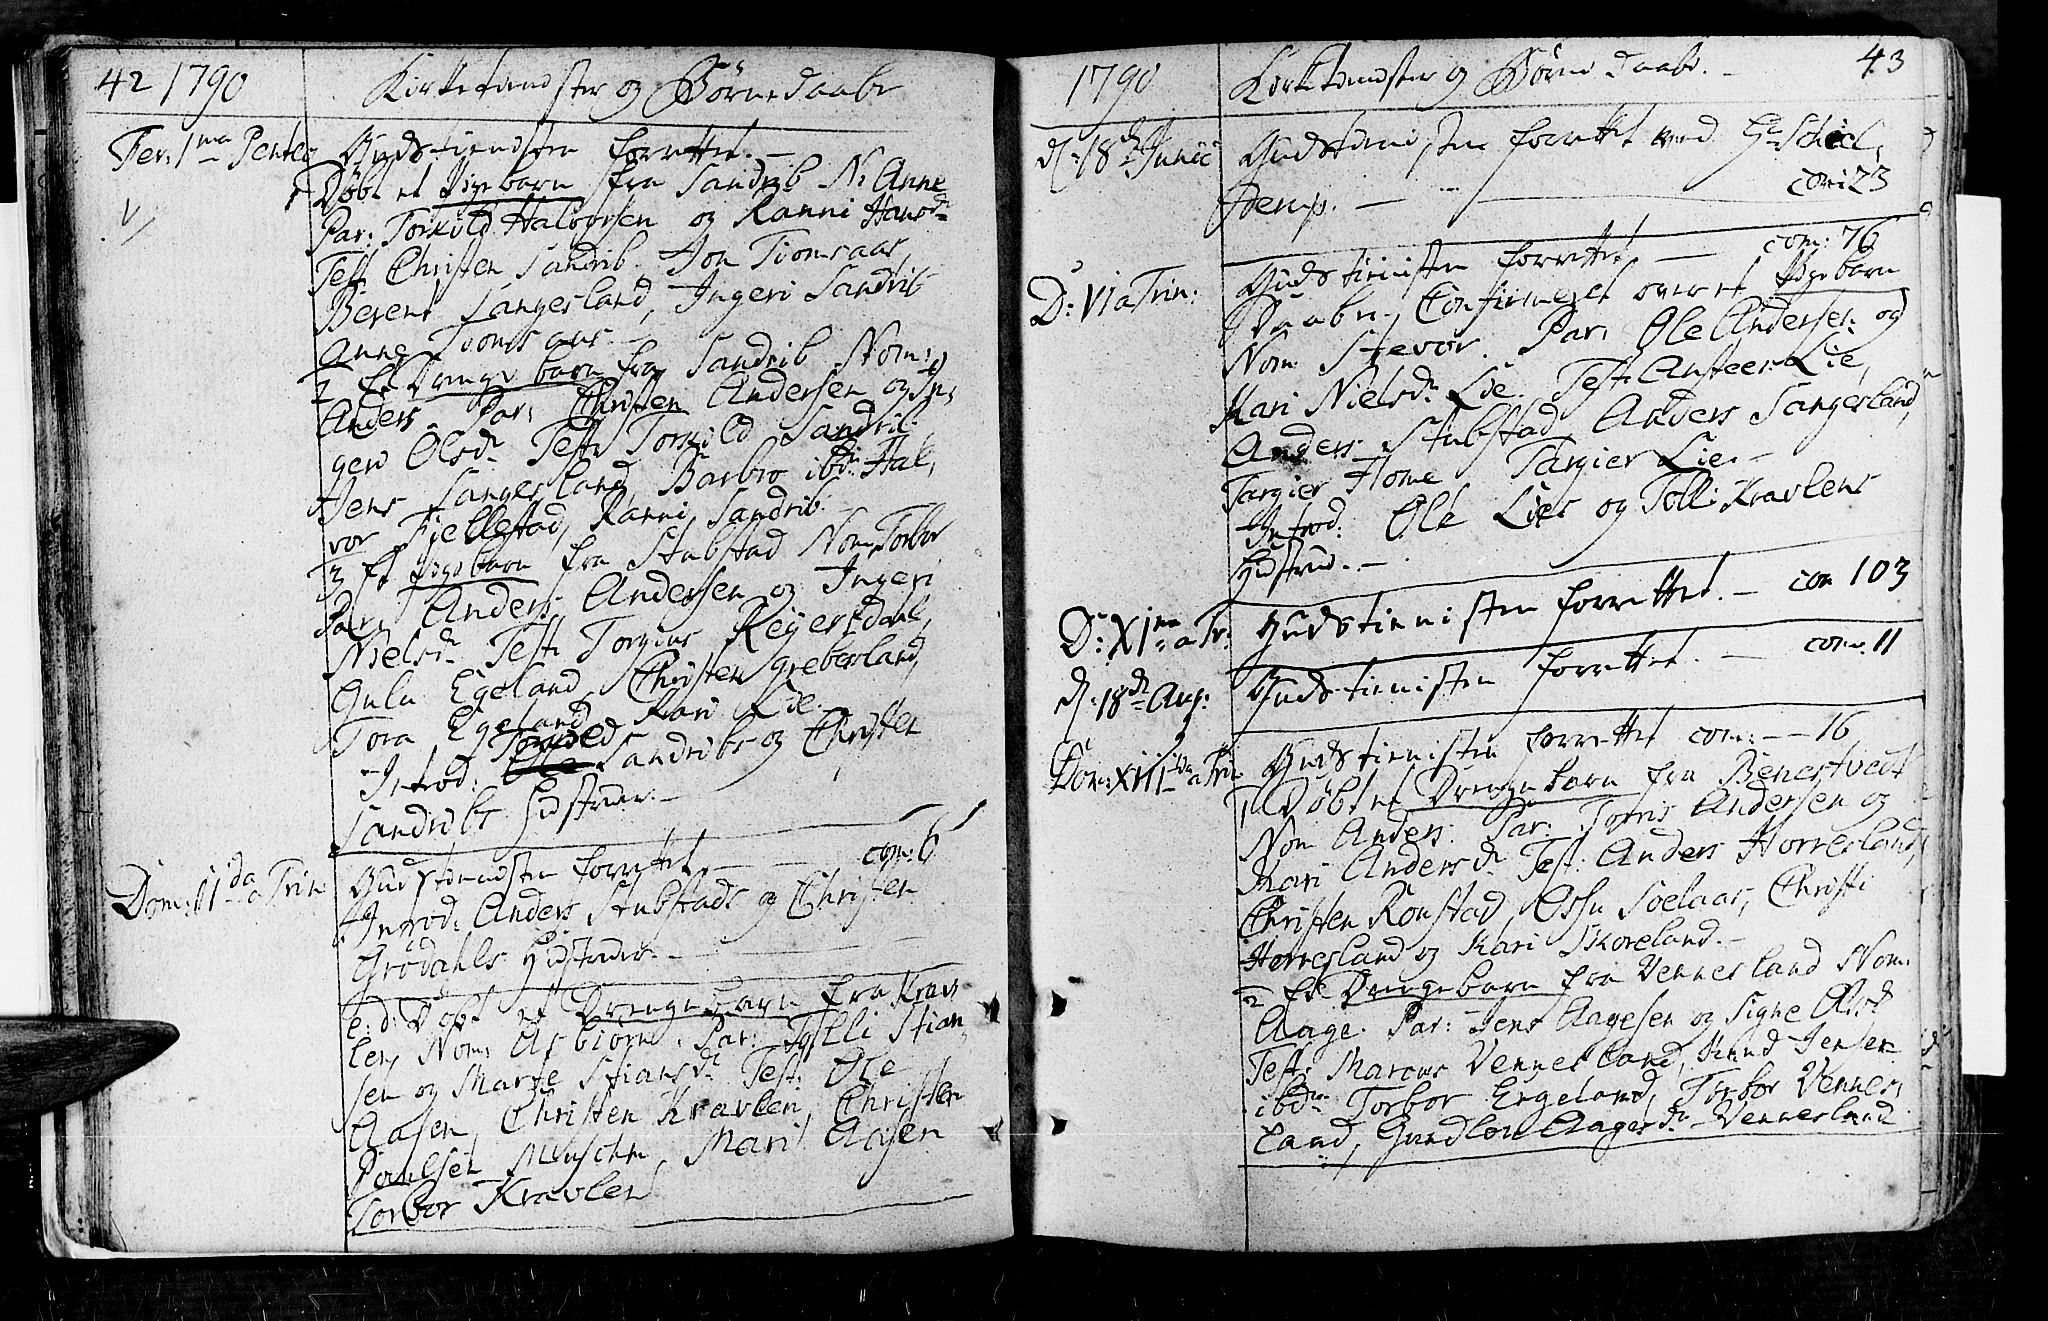 42 1790 Kirketienister og Børnedaabe
Fer: 1ma Pentec Gudstienisten forrettet. —
1 Døbt et Pigebarn fra Sandrib N: Anne
Par: Torkild Halvorsen og Ranni Hansdr
Test Christen Sandrib, Jon Tiomsaas,
Berent Langerland, Ingeri Sandrib
Anne Tiomsaas. —
2 Et Drenge barn fra Sandrib Nom:
Anders. Par: Christen Andersen og In,
geri Olsdr Test: Torkild Sandrib
Jens Langerland, Barbro ibdm Hal,
vor Fjellestad, Ranni Sandrib. —
3 Et Pigebarn fra Stubstad Nom: Torbor
Par: Anders Andersen og Ingeri
Nielsdr Test: Torgius Reyersdahl,
Gulu Egeland Christen Greberland,
Tora Egeland Kari Lie.
Introd: Torkild Sandribs og Christen
Sandribs Hustruer. —
Dom: IIda a Trin: Gudstienisten forrettet. — com: 6
Introd: Anders Stubstads og Christen
Grødahls Hustruer. —
e: d: Døbt et Drengebarn fra Krav
len, Nom: Asbiørn. Par: Tolli Stian,
sen og Marte Stiansdr Test: Ole
Aasen, Christen Kravlen, Christen
Poulsen Mari Aasen
Torbor Kravlen
1790 Kirketienister og Børne daabe. — 43
d: 18de Junii Gudstienisten forrettet med Hr Scheel,
com: 23
D: VI a Trin: Gudstienisten forrettet — com: 76
Daaben Confirmeret over et Pigebarn
Nom Stevor. Par: Ole Andersen og
Kari Nielsdr Lie. Test: Ansteen Lie,
Anders Stubstad, Anders Langerland,
Targier Home, Targier Lie. —
Introd: Ole Lies og Tolli Kravlens
Hustrue. —
D: XIma a Tr: Gudstienisten forrettet. — com 103
d: 18de Aug: Gudstienisten forrettet. — com: 11
Dom: XIIda a Trin Gudstienisten forrettet com: — 16
Døbt et Drengebarn fra Benestvedt
Nom Anders. Par: Torris Andersen og
Kari Andersdr Test: Anders Horresland,
Christen Ronstad, Osse Soelaas, Christi
Horresland og Kari Skoreland. —
2 Et Drengebarn fra Vennerland Nom:
Aage. Par: Jens Aagesen og Signe Olsdr
Test: Marcus Vennerland, Knud Jensen
ibdm Torbor Ergeland, Torbor Venner,
land, Gundlou Aagesdr Vennerland